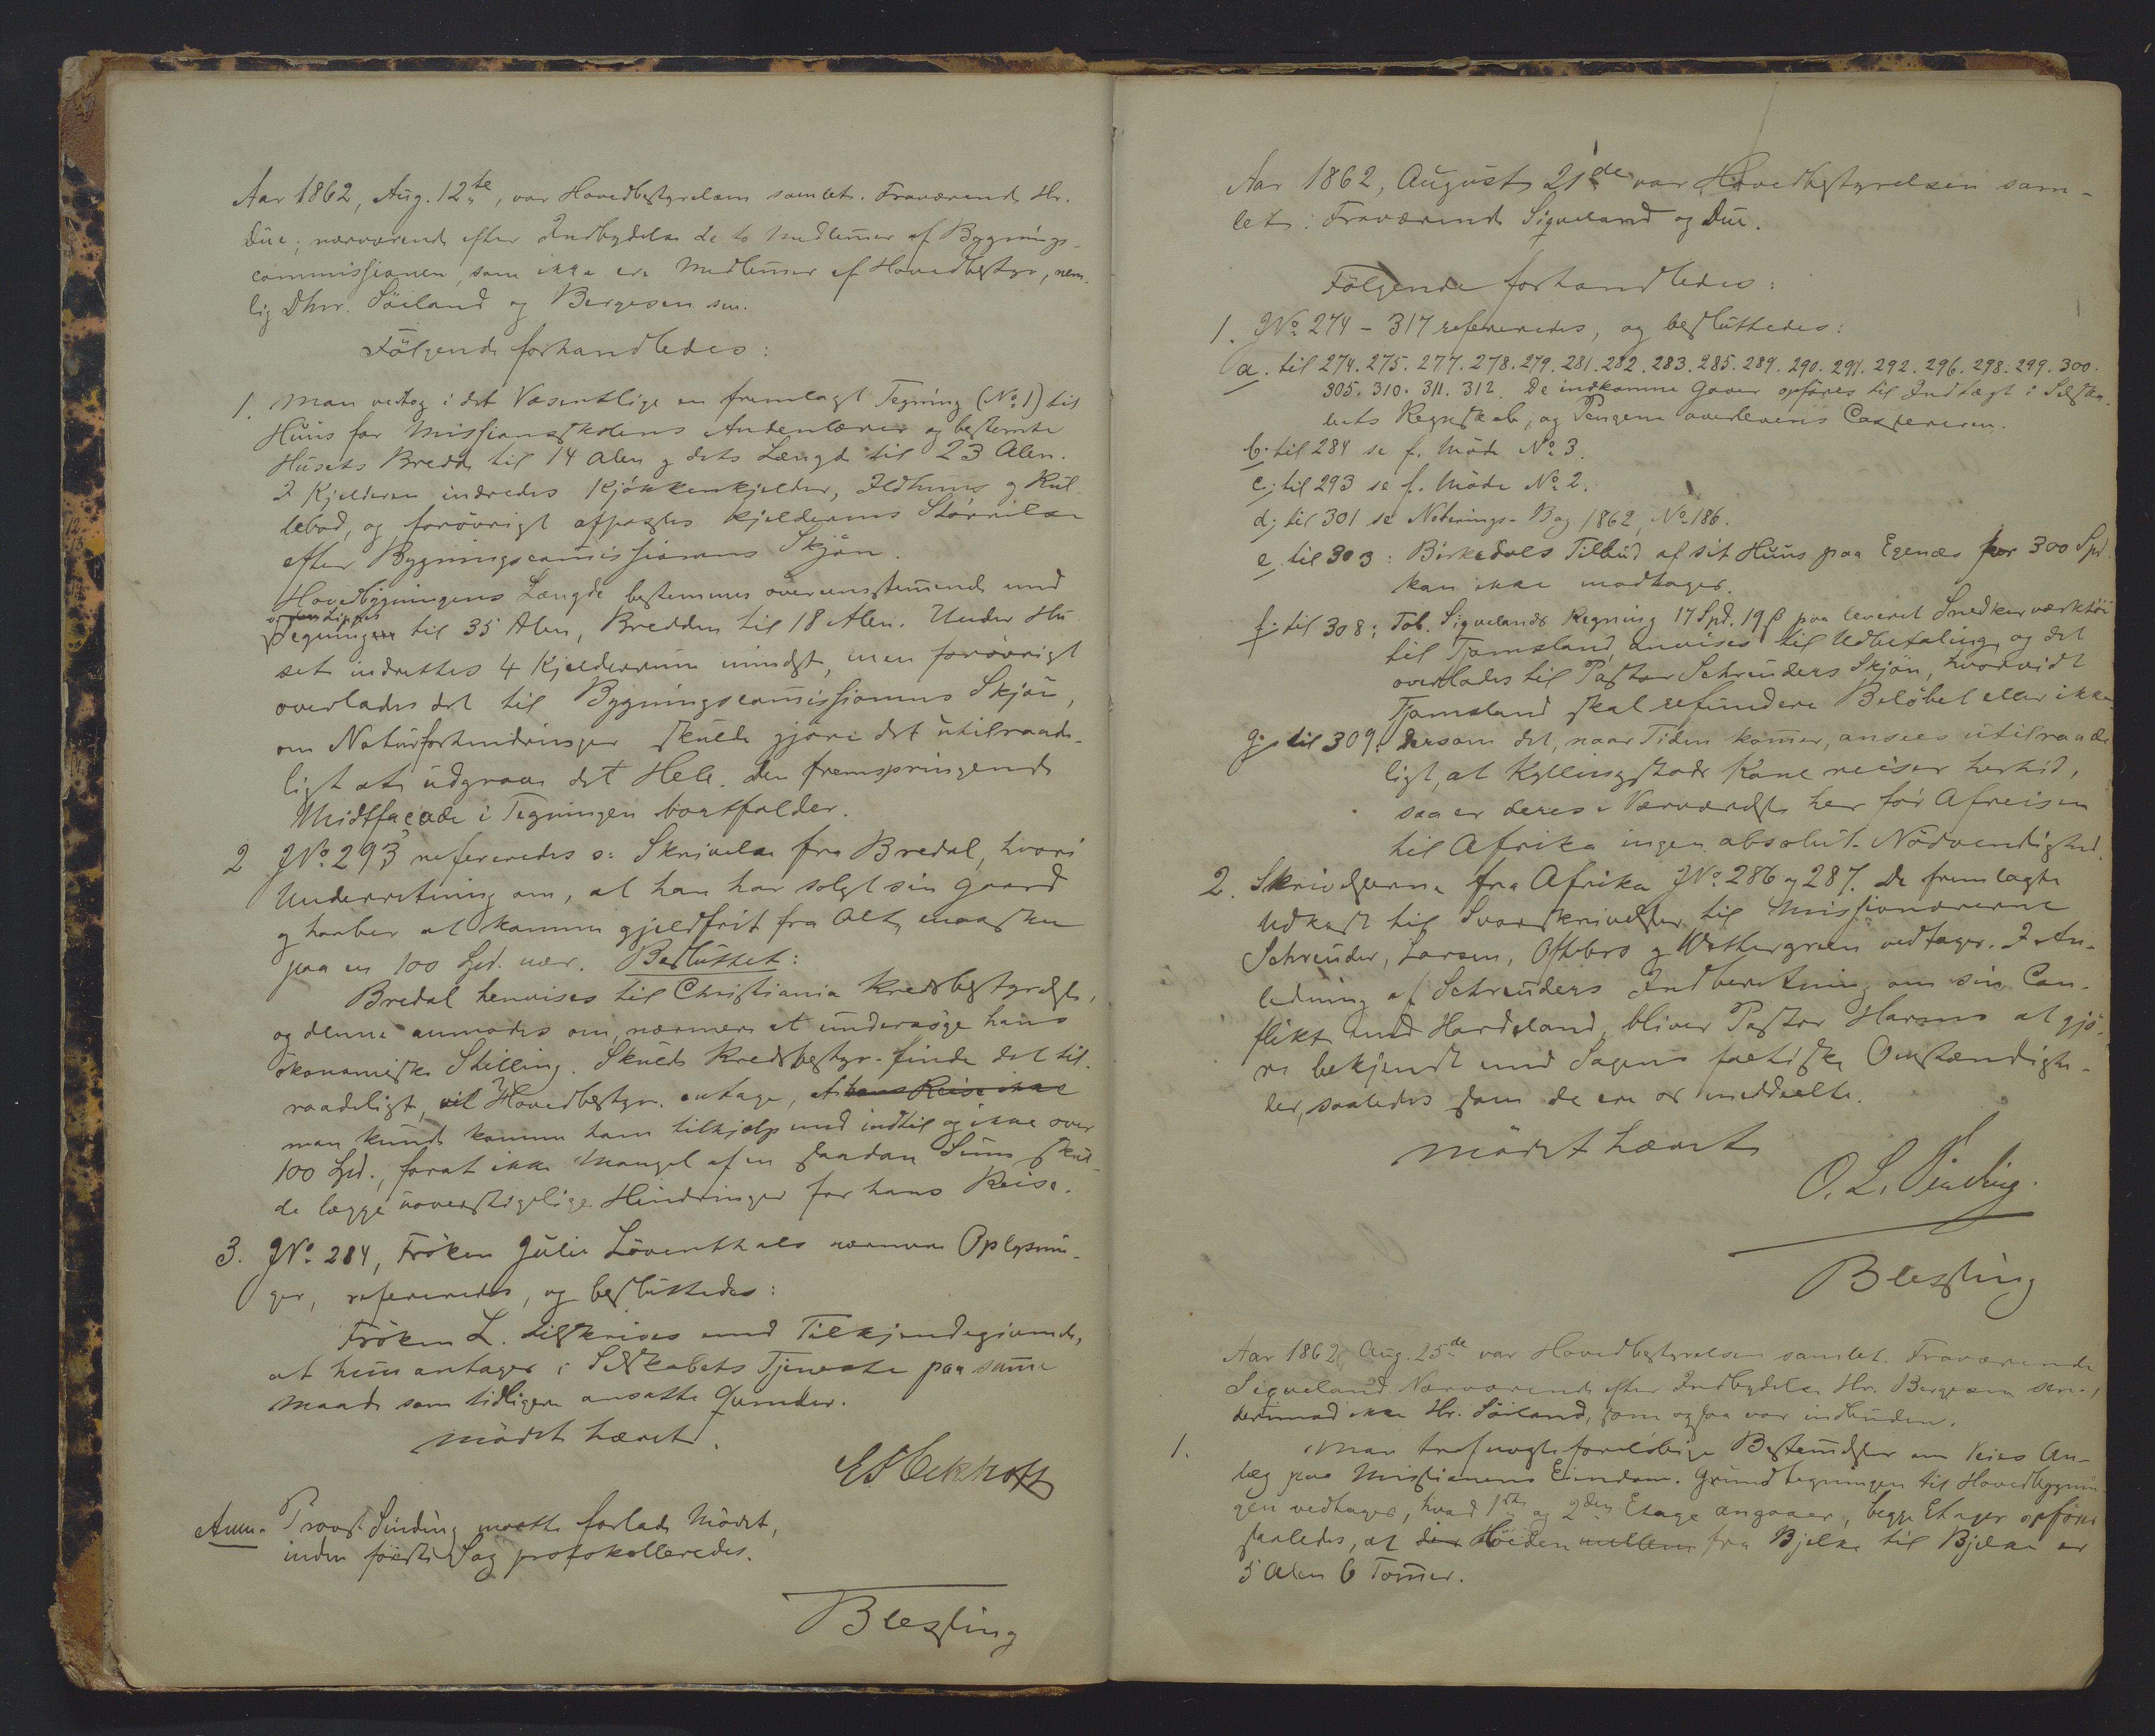 Aar 1862, Aug. 12te, var Hovedbestyrelsen samlet. Fraværende Hr.
Due; nærværende efter Indbydelse de to Medlemer af Bygnings-
commissionen, som ikke ere Medlemer af Hovedbestyr., nem-
lig Dhrr. Söiland og Bergesen sen.
Fölgende forhandledes:
1. Man vedtog i det Væsentlige en fremlagt Tegning (No 1) til
Huus for Missionsskolens Andenlærer og bestemte
Husets Bredde til 14 Alen og dets Længde til 23 Alen.
I Kjelderen indredes Kjökkenkjelder, Ildhuus og Rul-
lebod, og forövrigt afpasses Kjelderens Störrelse
efter Bygningscomissionens Skjön.
Hovedbygningens Længde bestemmes overeensstemende med
Tegningen til 35 Alen, Bredden til 18 Alen. Under Hu-
set indrettes 4 Kjelderrum mindst, men forövrigt
overlades det til Bygningscomissionens Skjön,
om Naturforhindringer skulde gjöre det utilraade-
ligt at udgrave det Hele. Den fremspringende
Midtfacade i Tegningen bortfalder.
2 JNo 293 refereredes o: Skrivelse fra Bredal, hvori
Underretning om, at han har solgt sin Gaard
og haaber at komme gjeldfrit fra Alt, maaskee
paa en 100 Spd. nær. Besluttet:
Bredal henvises til Christiania Kredsbestyrelse,
og denne anmodes om, nærmere at undersöge hans
ökonomiske Stilling. Skulde Kredsbestyr. finde det til-
raadeligt, vil Hovedbestyr. antage, at hans Reise ikke
man kunde komme ham tilhjælp med indtil og ikke over
100 Spd., forat ikke Mangel af en saadan Sum skul-
de lægge uoverstigelige Hindringer for hans Reise.
3. JNo 284, Fröken Julie Löventhals nærmere Oplysnin-
ger, refereredes, og besluttedes:
Fröken L. tilskrives med Tilkjendegivende,
at hun antages i Selskabets Tjeneste paa samme
Maade som tidligere ansatte Qvinder.
Mödet hævet.
Anm. Provst Sinding maatte forlade Mödet,
inden förste Sag protokolleredes.
Blessing
Aar 1862, August 21de var Hovedbestyrelsen sam-
let: Fraværende Siqveland og Due.
Fölgende forhandledes:
1. JNo 274 - 317 refereredes, og besluttedes:
a. til 274. 275. 277. 278. 279. 281. 282. 283. 285. 289. 290. 291. 292. 296. 298. 299. 300.
305. 310. 311. 312. De indkomne Gaver opföres til Indtægt i Selska-
bets Regnskab, og Pengene overleveres Cassereren.
b. til 284 se f. Möde No 3.
c; til 293 se f. Möde No 2.
d; til 301 se Noterings-Bog 1862, No 186.
e. til 303: Birkedals Tilbud af sit Huus paa Egenæs for 300 Spd.
kan ikke modtages.
f. til 308: Tob. Siqvelands Regning 17 Spd. 19 ß paa leveret Snedkerværktöi
til Tjomsland, anvises til Udbetaling, og det
overlades til Pastor Schreuders Skjön, hvorvidt
Tjomsland skal refundere Belöbet eller ikke.
g. til 309: Dersom det, naar Tiden kommer, ansees utilraade-
ligt, at Kyllingstads Kone reiser herhid,
saa er deres Nærværelse her för Afreisen
til Afrika ingen absolut Nödvendighed.
2. Skrivelserne fra Afrika JNo 286 og 287. De fremlagte
Udkast til Svarskrivelser til Missionærerne
Schreuder, Larsen, Oftebro og Wettergreen vedtages. I An-
ledning af Schreuders Indberetning om sin Con-
flikt med Hardeland, bliver Pastor Harms at gjö-
re bekjendt med Sagens factiske Omstændighe-
der, saaledes som de ere os meddeelte.
Mödet hævet
O. L. Sinding.
Blessing
Aar 1862, Aug. 25de var Hovedbestyrelsen samlet. Fraværende
Siqveland. Nærværende efter Indbydelse Hr. Bergesen sen.,
derimod ikke Hr. Söiland, som ogsaa var indbuden.
1. Man traf nogle foreløbige Bestemmelser om Veies An-
læg paa Missionens Eiendom. Grundtegningen til Hovedbygnin-
gen vedtages, hvad 1ste og 2den Etage angaaer, begge Etager opföres
saaledes, at den Höiden mellem fra Bjelke til Bjelke er
5 Alen 6 Tomer.